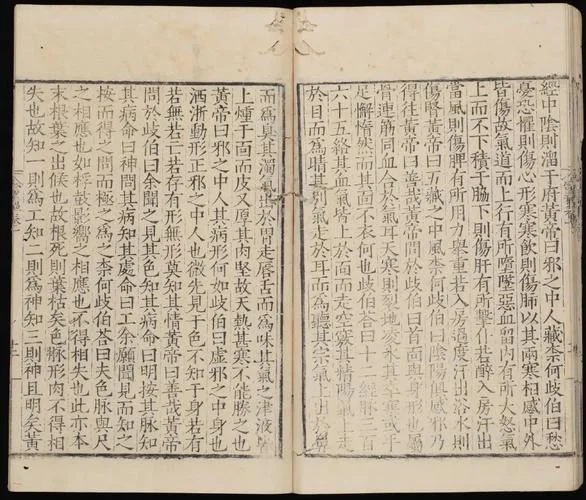 經中陰則溜于府黃帝曰邪之中人藏柰何歧伯曰愁
憂恐懼則傷心形寒寒飲則傷肺以其兩寒相感中外
皆傷故氣道而上行有所墮墜惡血留内有所大怒氣
上而不下積于脇下則傷肝有所擊仆若醉入房汗出
當風則傷脾有所用力舉重若入房過度汗出浴水則
傷腎黃帝曰五藏之中風柰何歧伯曰陰陽俱感邪乃
得往黃帝曰善哉黃帝問於歧伯曰首面與身形也屬
骨連筋同血合於氣耳天寒則裂地凌冰其卒寒或手
足懈惰然而其面不衣何也歧伯答曰十二經脉三百
六十五絡其血氣皆上於面而走空竅其精陽氣上走
於目而爲睛其別氣走於耳而爲聽其宗氣上出於鼻
而爲臭其濁氣出於胃走唇舌而爲味其氣之津液皆
上燻于面而皮又厚其肉堅故天熱甚寒不能勝之也
黃帝曰邪之中人其病形何如歧伯曰虛邪之中身也
洒淅動形正邪之中人也微先見于色不知于身若有
若無若亡若存有形無形莫知其情黃帝曰善哉黃帝
問於歧伯曰余聞之見其色知其病命曰明按其脉知
其病命曰神問其病知其處命曰工余願聞見而知之
按而得之問而極之爲之柰何歧伯荅曰夫色脉與尺
之相應也如桴鼓影響之相應也不得相失也此亦本
末根葉之出候也故根死則葉枯矣色脉形肉不得相
失也故知一則爲工知二則爲神知三則神且明矣黃